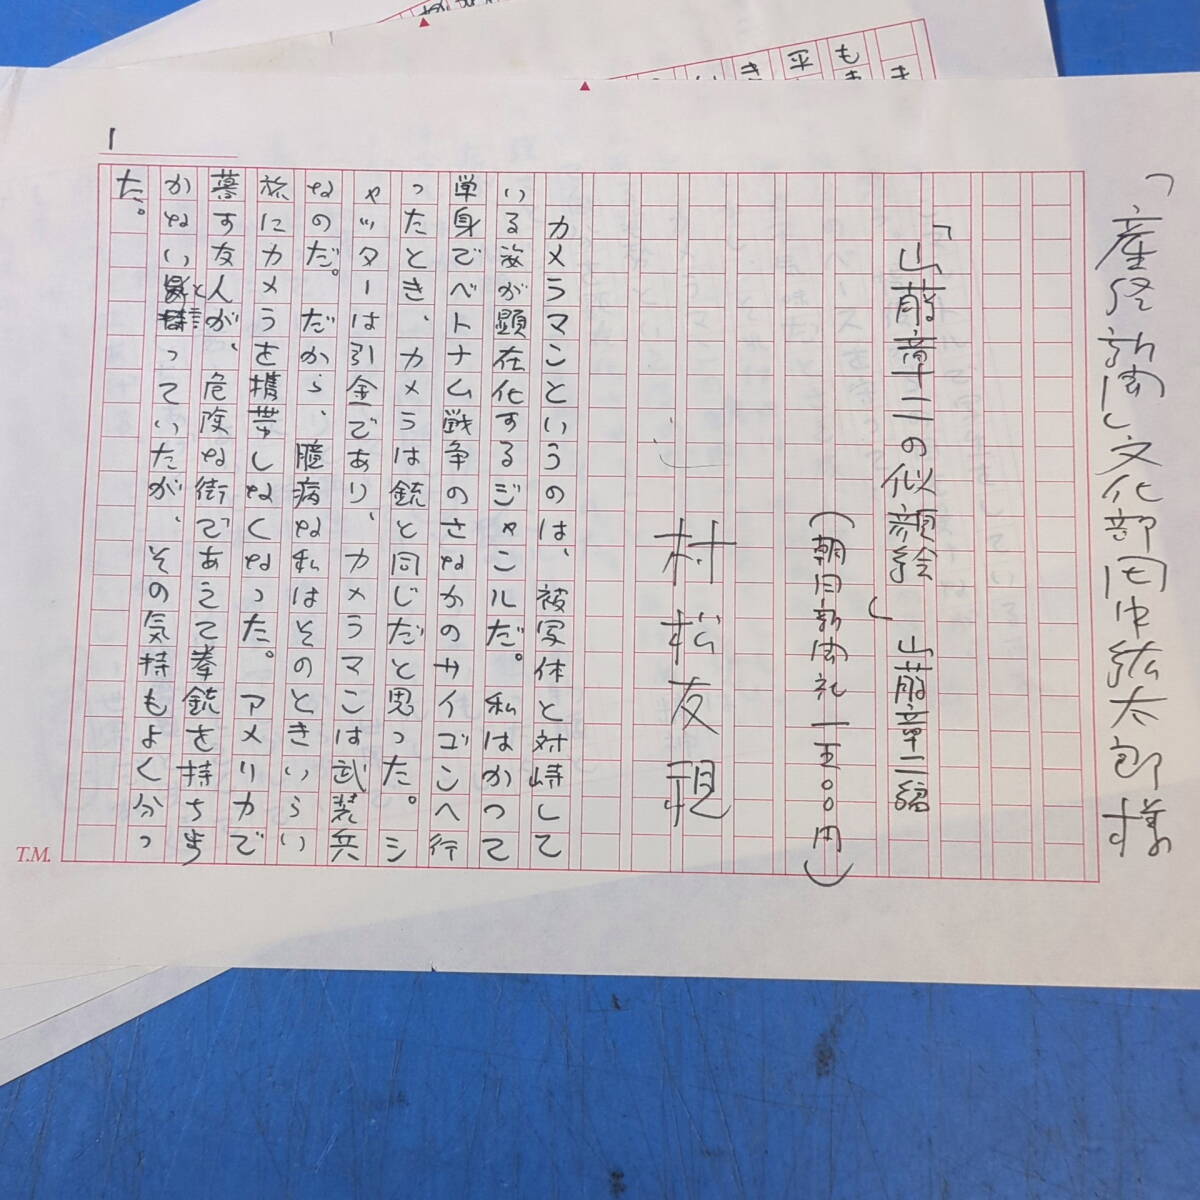 「産経新聞」文化部田中紘太郎様
「山藤章二の似顔絵」 山藤章二編
(朝日新聞社一五〇〇円)
村松友視
カメラマンというのは、被写体と対峙して
いる姿が顕在化するジャンルだ。私はかつて
単身でベトナム戦争のさなかのサイゴンへ行
ったとき、カメラは銃と同じだと思った。シ
ャッターは引金であり、カメラマンは武装兵
なのだ。だから、臆病な私はそのときいらい
旅にカメラを携帯しなくなった。アメリカで
暮す友人が、危険な街であえて拳銃を持ち歩
かないと言っていたが、その気持もよく分っ
た。
1
T.M.